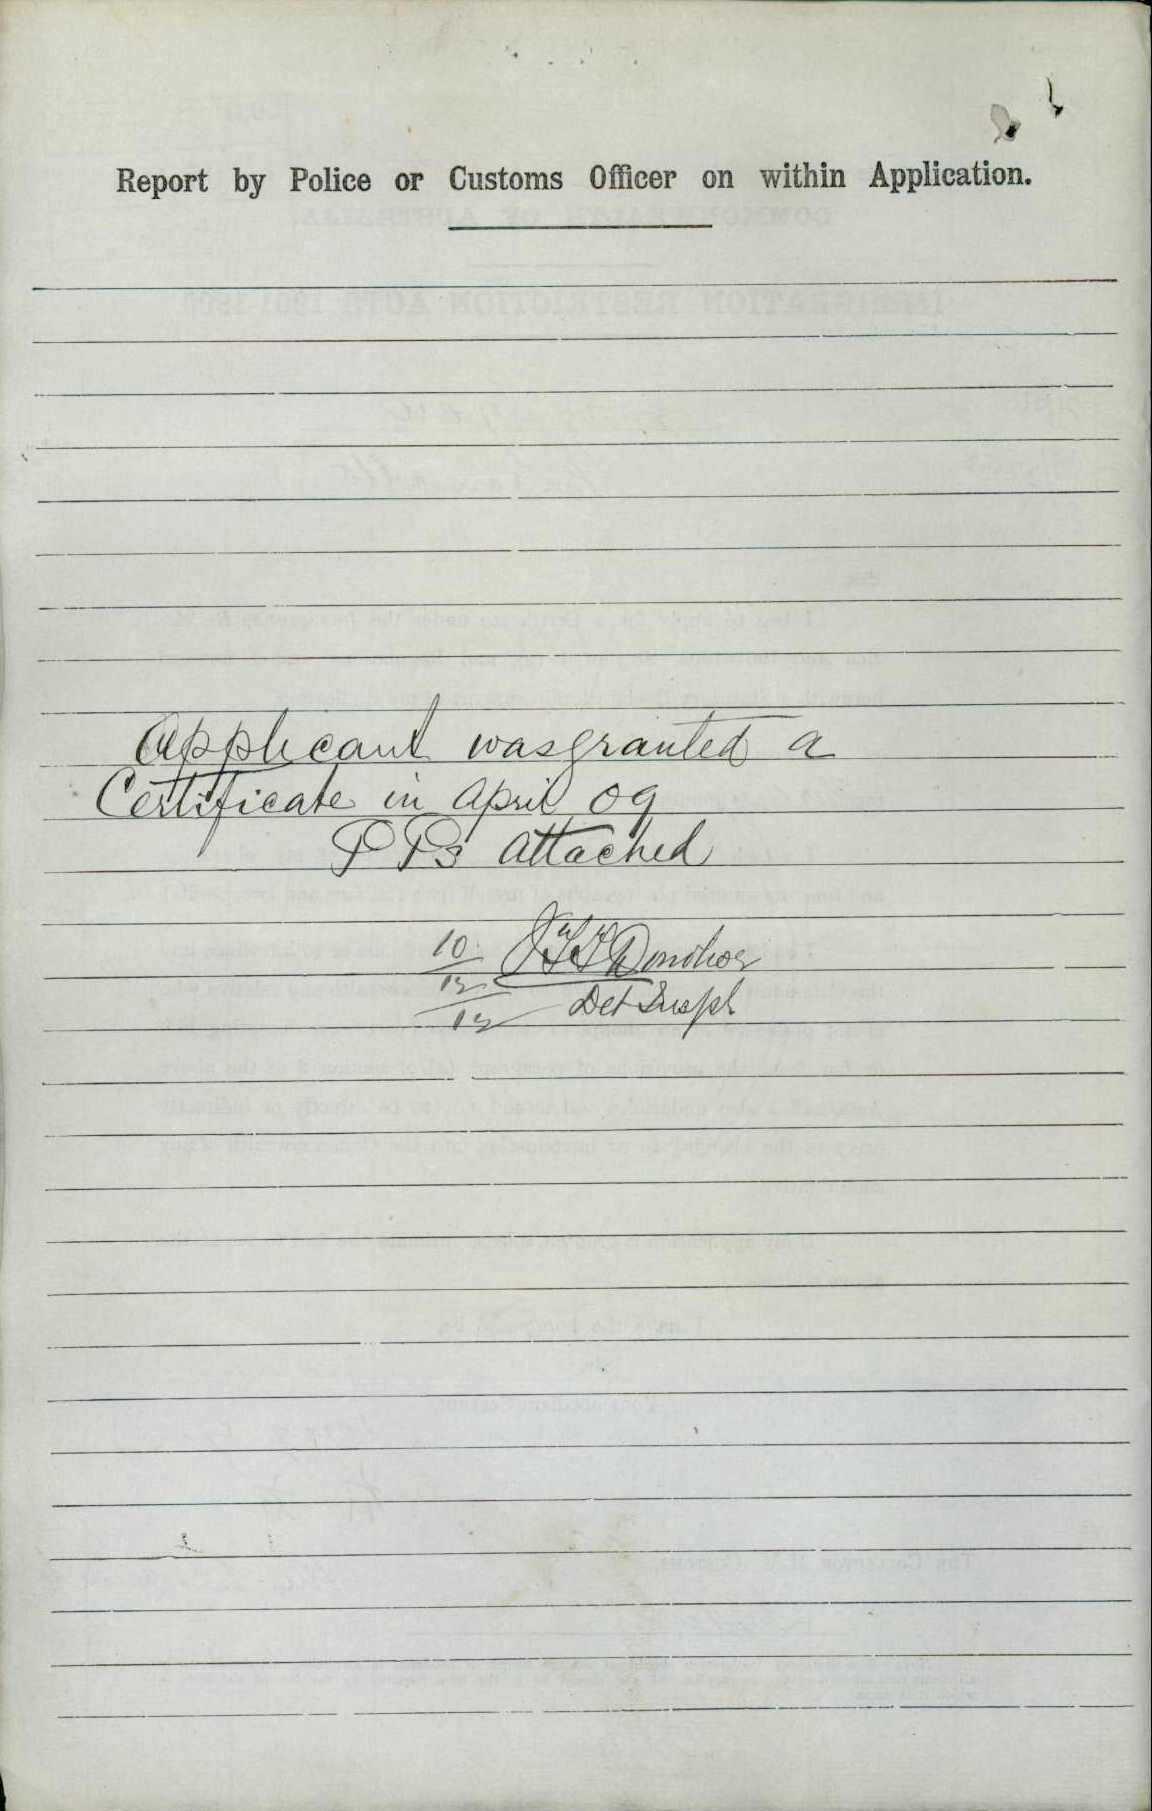 Report by Police or Customs Officer on within Application.
Applicant was granted a
Certificate in April 09
PPs attached
10/12/12 Donohoe
Det Insptr